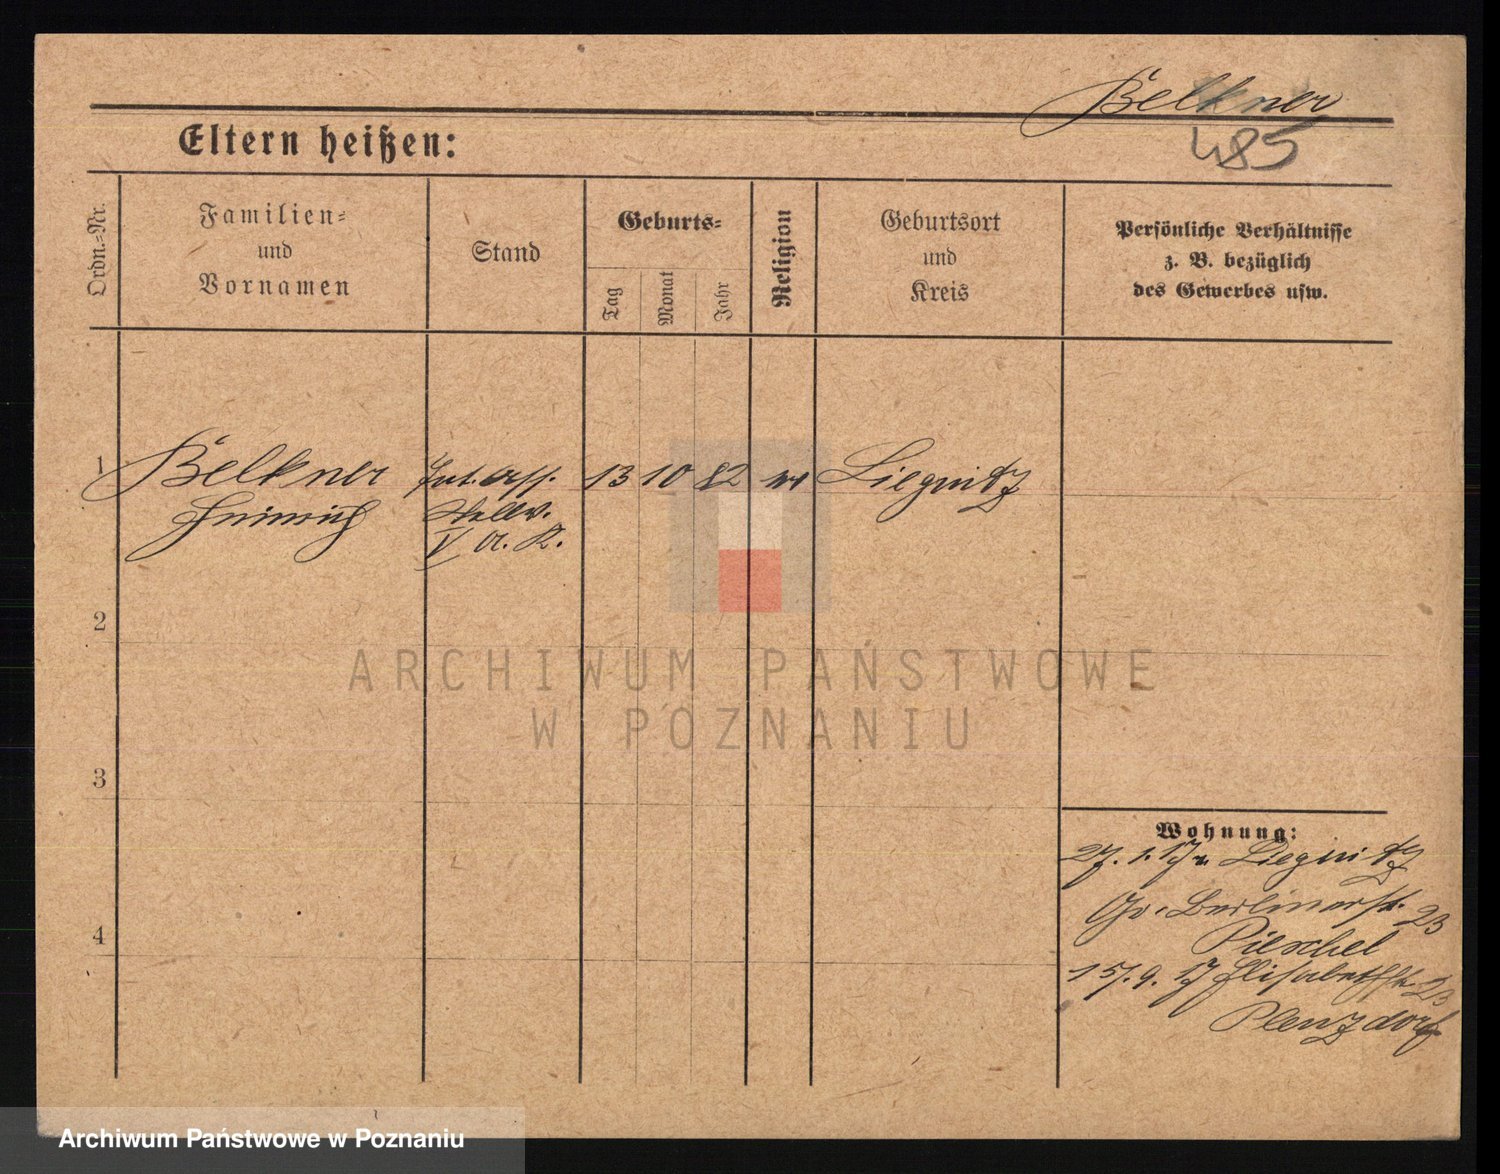 Belkner
485
Eltern heißen:
Ordn.=Nr.
Familien=
und
Vornamen
Stand
Geburts=
Tag
Monat
Jahr
Religion
Geburtsort
und
Kreis
Persönliche Verhältnisse
z. B. bezüglich
des Gewerbes usw.
1 Belkner Int. Ass. 13 10 82 ev Liegnitz
Heinrich Stellv.
V A. K.
2
3
4
Wohnung:
27. 1. 17 v. Liegnitz
Gr. Berlinerstr. 23
Pieschel
15. 9. 17 Elisabethstr. 23
Plenzdorf
ARCHIWUM PAŃSTWOWE
W POZNANIU
Archiwum Państwowe w Poznaniu